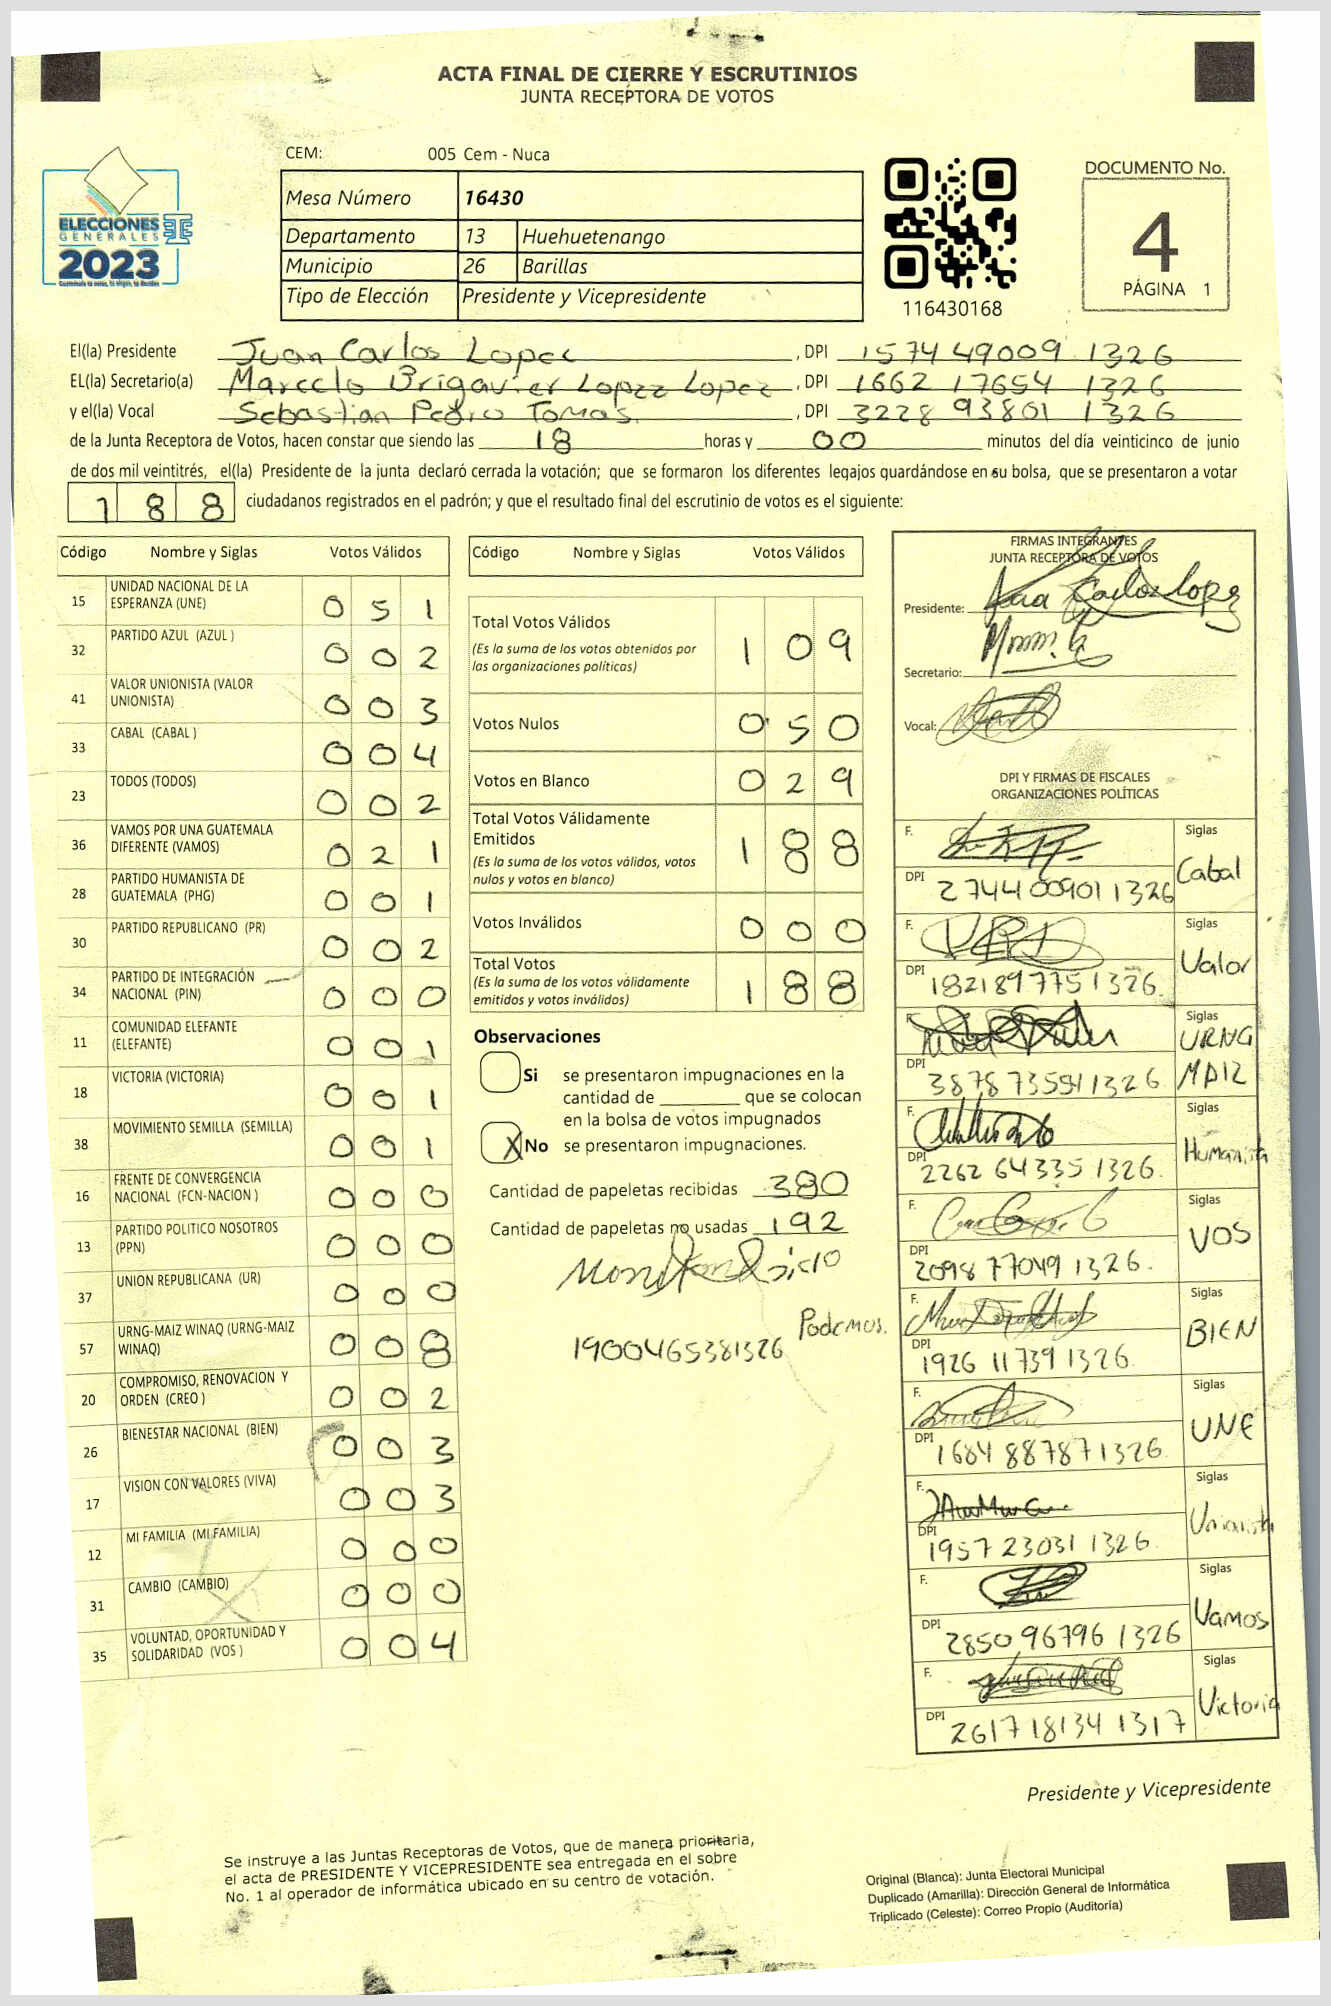 ACTA FINAL DE CIERRE Y ESCRUTINIOS
JUNTA RECEPTORA DE VOTOS
CEM: 005 Cem - Nuca
ELECCIONES
GENERALES
2023
Mesa Número 16430
Departamento 13 Huehuetenango
Municipio 26 Barillas
Tipo de Elección Presidente y Vicepresidente
116430168
DOCUMENTO No.
4
PÁGINA 1
El(la) Presidente Juan Carlos Lopez , DPI 1574 49009 1326
EL(la) Secretario(a) Marcelo Brigavier Lopez Lopez , DPI 1662 17654 1326
y el(la) Vocal Sebastian Pedro Tomas. , DPI 3228 93801 1326
de la Junta Receptora de Votos, hacen constar que siendo las 18 horas y 00 minutos del día veinticinco de junio
de dos mil veintitrés, el(la) Presidente de la junta declaró cerrada la votación; que se formaron los diferentes legajos guardándose en su bolsa, que se presentaron a votar
188 ciudadanos registrados en el padrón; y que el resultado final del escrutinio de votos es el siguiente:
Código Nombre y Siglas Votos Válidos
15 UNIDAD NACIONAL DE LA ESPERANZA (UNE) 051
32 PARTIDO AZUL (AZUL ) 002
41 VALOR UNIONISTA (VALOR UNIONISTA) 003
33 CABAL (CABAL ) 004
23 TODOS (TODOS) 002
36 VAMOS POR UNA GUATEMALA DIFERENTE (VAMOS) 021
28 PARTIDO HUMANISTA DE GUATEMALA (PHG) 001
30 PARTIDO REPUBLICANO (PR) 002
34 PARTIDO DE INTEGRACIÓN NACIONAL (PIN) 000
11 COMUNIDAD ELEFANTE (ELEFANTE) 001
18 VICTORIA (VICTORIA) 001
38 MOVIMIENTO SEMILLA (SEMILLA) 001
16 FRENTE DE CONVERGENCIA NACIONAL (FCN-NACION ) 000
13 PARTIDO POLITICO NOSOTROS (PPN) 000
37 UNION REPUBLICANA (UR) 000
57 URNG-MAIZ WINAQ (URNG-MAIZ WINAQ) 008
20 COMPROMISO, RENOVACION Y ORDEN (CREO ) 002
26 BIENESTAR NACIONAL (BIEN) 003
17 VISION CON VALORES (VIVA) 003
12 MI FAMILIA (MI FAMILIA) 000
31 CAMBIO (CAMBIO) 000
35 VOLUNTAD, OPORTUNIDAD Y SOLIDARIDAD (VOS ) 004
Código Nombre y Siglas Votos Válidos
Total Votos Válidos 109
(Es la suma de los votos obtenidos por
las organizaciones políticas)
Votos Nulos 050
Votos en Blanco 029
Total Votos Válidamente
Emitidos 188
(Es la suma de los votos válidos, votos
nulos y votos en blanco)
Votos Inválidos 000
Total Votos 188
(Es la suma de los votos válidamente
emitidos y votos inválidos)
Observaciones
Si se presentaron impugnaciones en la
cantidad de ________ que se colocan
en la bolsa de votos impugnados
X No se presentaron impugnaciones.
Cantidad de papeletas recibidas 380
Cantidad de papeletas no usadas 192
Podemos.
1900465381326
FIRMAS INTEGRANTES
JUNTA RECEPTORA DE VOTOS
Presidente: Juan Carlos Lopez
Secretario:
Vocal:
DPI Y FIRMAS DE FISCALES
ORGANIZACIONES POLÍTICAS
F. Siglas Cabal
DPI 2744009011326
F. Siglas Valor
DPI 1821897751326.
F. Siglas URNG MAIZ
DPI 3878735541326
F. Siglas Humanista
DPI 2262 64335 1326.
F. Siglas VOS
DPI 2098 77049 1326.
F. Siglas BIEN
DPI 1926 11739 1326.
F. Siglas UNE
DPI 1684 88787 1326.
F. Siglas Unionista
DPI 1957 23031 1326.
F. Siglas Vamos
DPI 2850 96796 1326
F. Siglas Victoria
DPI 2617 18134 1317
Presidente y Vicepresidente
Se instruye a las Juntas Receptoras de Votos, que de manera prioritaria,
el acta de PRESIDENTE Y VICEPRESIDENTE sea entregada en el sobre
No. 1 al operador de informática ubicado en su centro de votación.
Original (Blanca): Junta Electoral Municipal
Duplicado (Amarilla): Dirección General de Informática
Triplicado (Celeste): Correo Propio (Auditoría)